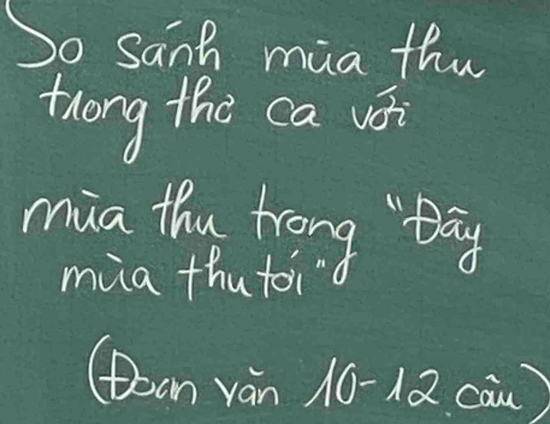 So sánh mùa thu
trong thơ ca với
mùa thu trong "Đây
mùa thu tới"
(Đoạn văn 10-12 câu)